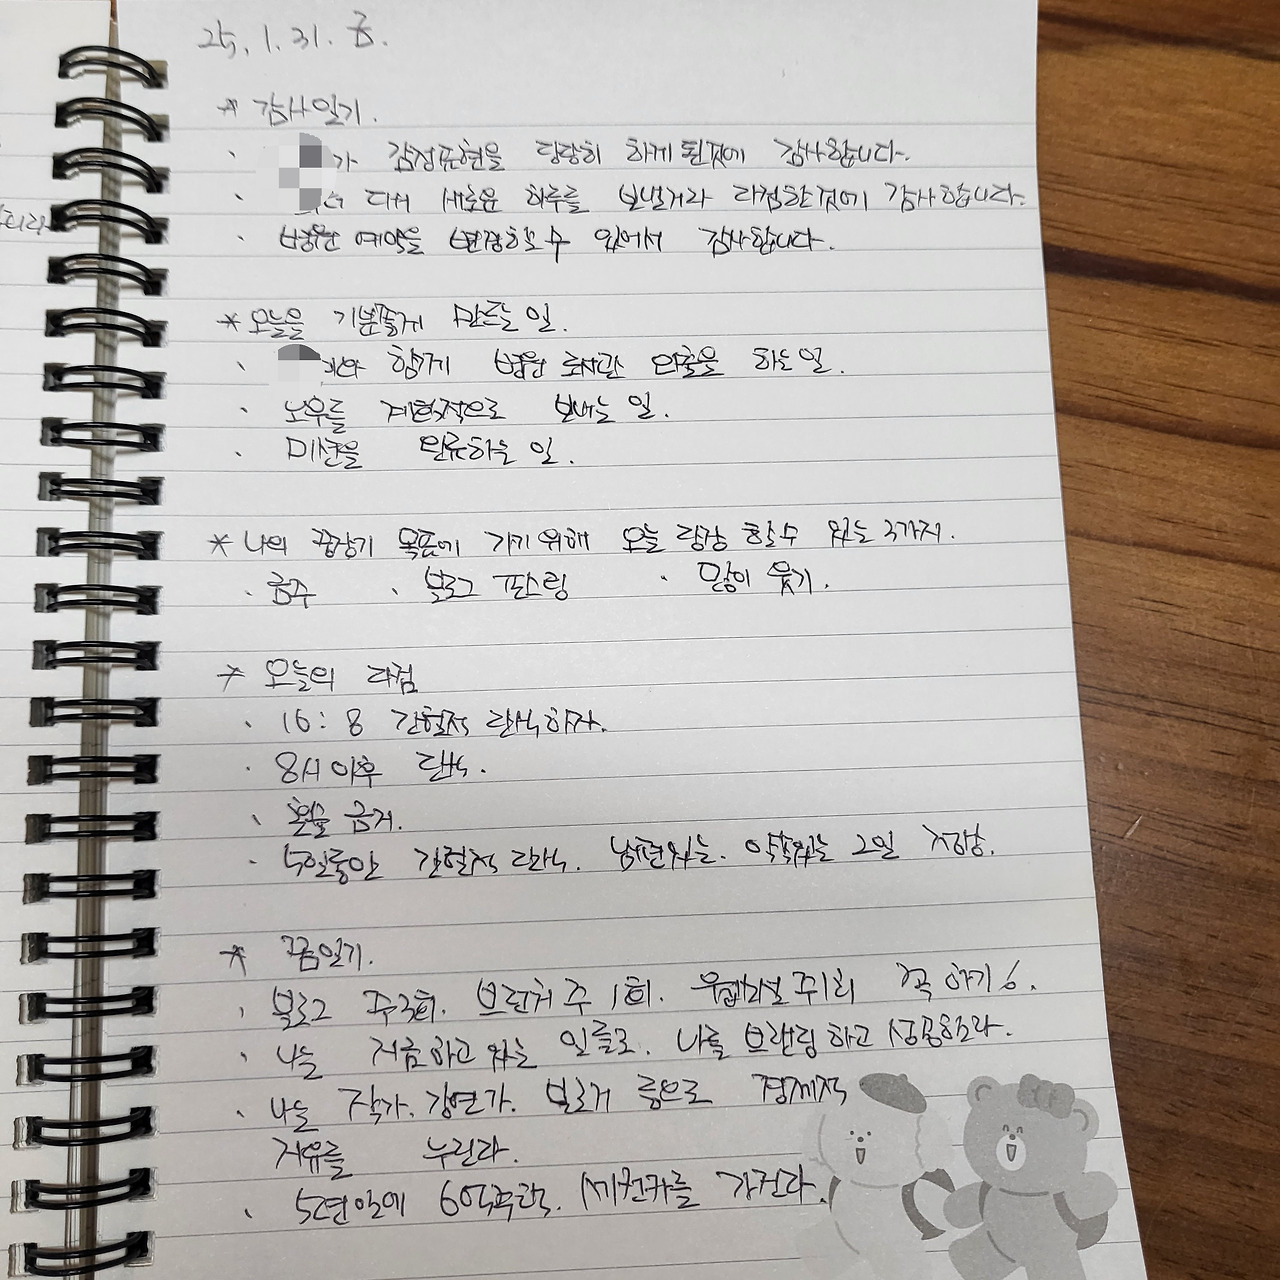 25. 1. 31. 금.
* 감사일기.
· 가 감정표현을 당당히 하게 된것에 감사합니다.
· 다시 새로운 하루를 보낼거라 다짐한 것에 감사합니다.
· 병원 예약을 변경할 수 있어서 감사합니다.
* 오늘을 기분좋게 만드는 일.
· 함께 병원 외출을 하는 일.
· 노우를 계획적으로 보내는 일.
· 미션을 완료하는 일.
* 나의 중장기 목표에 가기 위해 오늘 당장 할 수 있는 3가지.
· 금주 · 블로그 포스팅 · 많이 웃기.
* 오늘의 다짐
· 16:8 간헐적 단식하자.
· 8시 이후 단식.
· 혼술 금지.
· 5일동안 간헐적 단식. 남편있는. 약속있는 2일 저장.
* 꿈일기.
· 블로그 주3회. 브런치 주 1회. 주1회 꼭 하기.
· 나는 지금 하고 있는 일들로. 나를 브랜딩 하고 성공한다.
· 나는 작가. 강연가. 블로거 등으로 경제적
자유를 누린다.
· 5년안에 6억주택. 세컨카를 가진다.